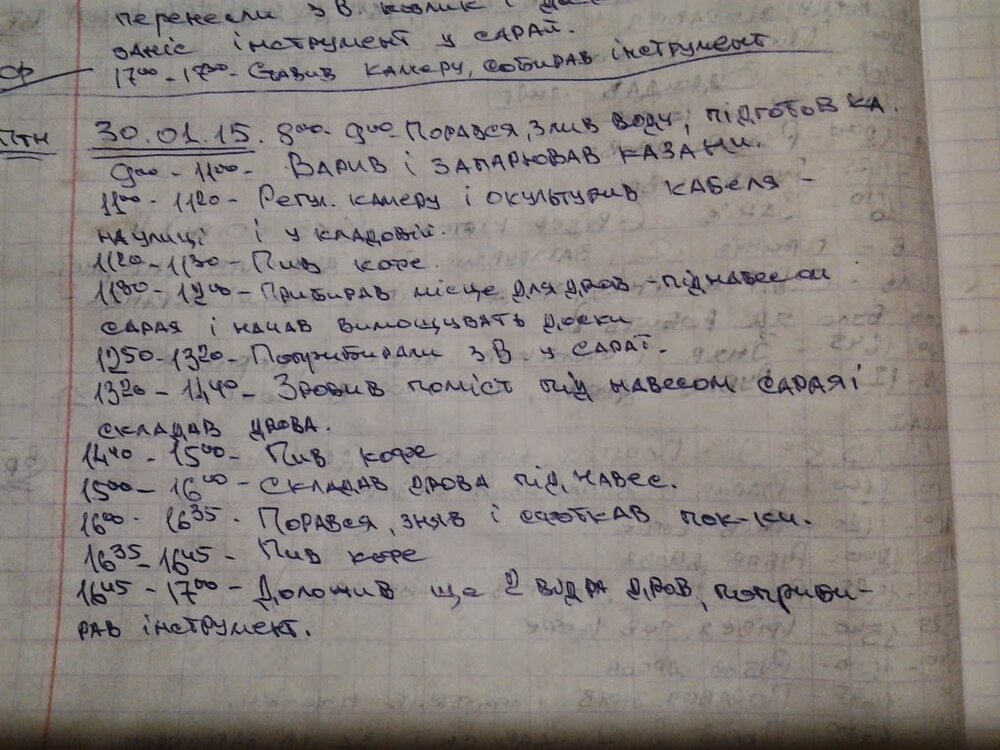 перенесли з В. козлик і
заніс інструмент у сарай.
Ср 17⁰⁰-17³⁰- Ставив камеру, собирав інструмент
Птн 30.01.15. 8⁰⁰- 9⁰⁰- Порався, злив воду, підготовка.
9⁰⁰- 11⁰⁰- Варив і запарював казани.
11⁰⁰- 11²⁰- Регул. камеру і окультурив кабеля -
на улиці і у кладовій.
11²⁰-11³⁰- Пив кофе.
11³⁰- 12⁰⁰- Прибирав місце для дров - під навесом
сарая і начав вимощувать доски
12⁵⁰-13²⁰- Поприбирали з В. у сараї.
13²⁰- 14⁴⁰- Зробив поміст під навесом сарая і
складав дрова.
14⁴⁰- 15⁰⁰- Пив кофе
15⁰⁰- 16⁰⁰- Складав дрова під навес.
16⁰⁰- 16³⁵- Порався, зняв і пок-ки.
16³⁵-16⁴⁵- Пив кофе
16⁴⁵- 17⁰⁰- Доложив ще 2 відра дров, поприби-
рав інструмент.